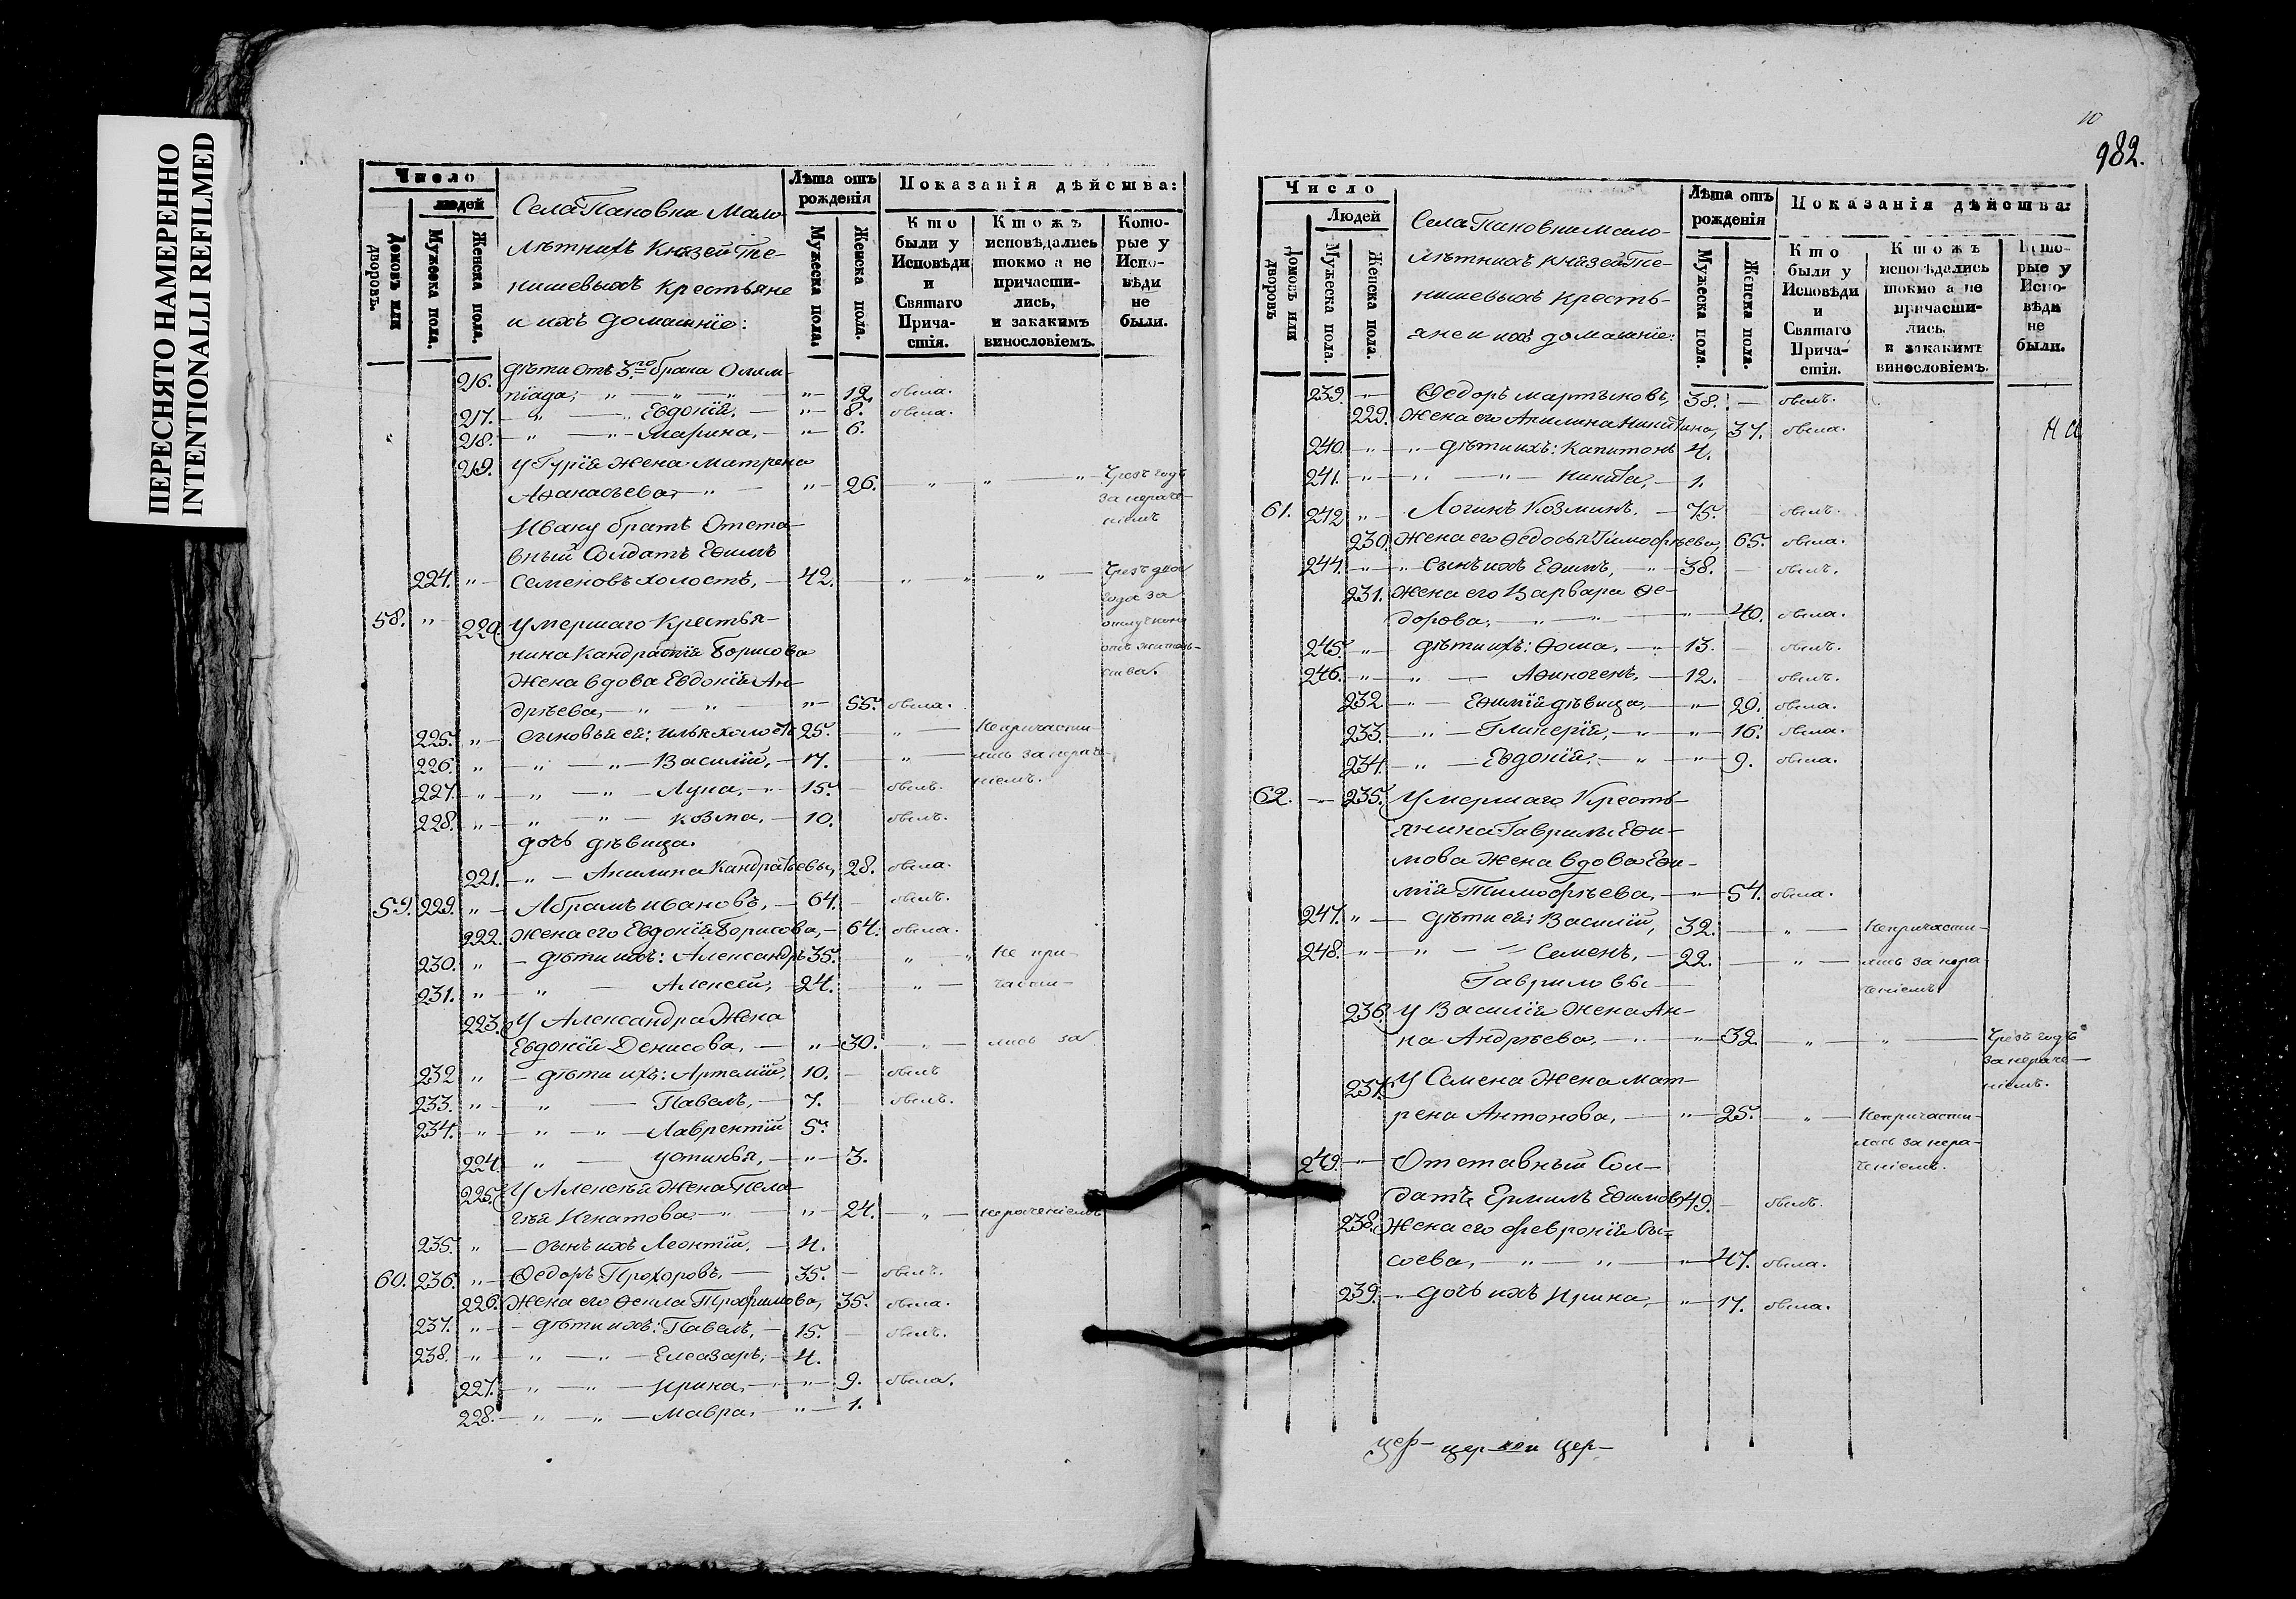 ПЕРЕСНЯТО НАМЕРЕННО
INTENTIONALLI REFILMED
Число
людей
Домовъ или дворовъ.
Мужеска пола.
Женска пола.
Села Пановки Мало
лѣтнихъ Князей Те-
нишевыхъ крестьяне
и ихъ домашніе:
Лѣта отъ рожденія
Мужеска пола.
Женска пола.
Показанія дѣйства:
Кто были у Исповѣди и Святаго Прича-стія.
Ктожъ исповѣдались токмо а не причасти-лись, и закакимъ винословіемъ.
Кото-рые у Испо-вѣди не были.
216. дѣти отъ 3го брака Олим-
піада, " — " 12. была.
217. " — " Евдокія, — " 8. была.
218. " — " Марина, — " 6.
219. У Гурія жена Матрена
Аѳанасьева, — " 26. " — " — " Чрезъ годъ
за нераче-
ніемъ
Ивану братъ Отста-
вный Солдатъ Еѳимъ
224. " Семеновъ холостъ, — 42. " — " — " Чрезъ два
года за
отлучкою
отъ житель-
ства.
58. " 220. Умершаго Крестья-
нина Кандратія Борисова
жена вдова Евдокія Ан-
дрѣева, — " — " 55. была.
225. " сыновья ей: Илья холостъ 25. " — Непричасти-
226. " " — " Василій, — 17. " — лись за нераче-
227. " " — " Лука, — 15. былъ. ніемъ.
228. " " — " Козма, — 10. былъ.
дочь дѣвица.
221. " — Акилина Кандратьевы, 28. была.
59. 229. " Абрамъ Ивановъ, — 64. былъ.
222. жена его Евдокія Борисова, — 64. была.
230. " — дѣти ихъ: Александръ 35. " — " Не при-
231. " " — Алексей, 24. " — части-
223. У Александра жена
Евдокія Денисова, — " 30. " — лись за
232 " — дѣти ихъ: Артемій, 10. — былъ
233. " " — Павелъ, — 7. былъ.
234. " " — " — Лаврентій 5.
224. " — Устинья, — " 3.
225. У Алексѣя жена Пела-
гѣя Игнатова, — " — " 24. " — нераченіемъ
235. " — сынъ ихъ Леонтій, — 4.
60. 236. " — Ѳедоръ Прохоровъ, — 35. — былъ.
226. Жена его Ѳекла Трофимова, 35. была.
237. " — дѣти ихъ: Павелъ, — 15. былъ.
238. " " — " — Елеазаръ, — 4.
227. " — " — Ирина, — " 9. была.
228. " — " — Мавра, — " 1.
10
982.
Число
Людей
Домовъ или дворовъ
Мужеска пола.
Женска пола.
Села Пановки мало-
лѣтнихъ князей Те-
нишевыхъ кресть-
яне и ихъ домашніе:
Лѣта отъ рожденія
Мужеска пола.
Женска пола.
Показанія дѣйства:
Кто были у Исповѣди и Святаго Прича-стія.
Ктожъ исповѣдались токмо а не причасти-лись. и закакимъ винословіемъ.
Кото-рые у Испо-вѣди не были.
239. " Ѳедоръ Мартыновъ, 38. — былъ.
229. Жена его Акилина Никитина, 37. была.
240. " — " дѣти ихъ: Капитонъ 4.
241. " — " — Никита, — 1.
61. 242 " Логинъ Козминъ, — 75. былъ.
230. жена его Ѳедосья Тимофѣева, 65. была.
244. " — " сынъ ихъ Еѳимъ, — " 38. былъ.
231. жена его Варвара Ѳе-
дорова, — " — " 40. была.
245. " — дѣти ихъ: Ѳома, — " 13. былъ.
246. " — " — Аѳиногенъ, — 12. былъ.
232 " — Еѳимія дѣвица, — " 20. была.
233. " — Гликерія, — " 16. была.
234. " — Евдокія, — " 9. была.
62. — 235. Умершаго Кресть-
янина Гаврилы Еѳи-
мова жена вдова Еѳи-
мія Тимофѣева, — " 54. была.
247. " — дѣти ей: Василій, 32. " — Непричасти-
248. " — " — Семенъ, — 22. " — лись за нера-
Гавриловы — ченіемъ
236. у Василія жена Ан-
на Андрѣева, — " 32 " — " — Чрезъ годъ
за нераче-
ніемъ.
237. У Семена жена Мат-
рена Антонова, — " 25. " — Непричасти-
лась за нера-
ченіемъ.
249. " Отставный Сол-
датъ Ермилъ Еѳимовъ 49. — былъ.
238. Жена его Февронія Вы-
соева, — " — " 47. была.
239. — дочь ихъ Ирина, — " 17. была.